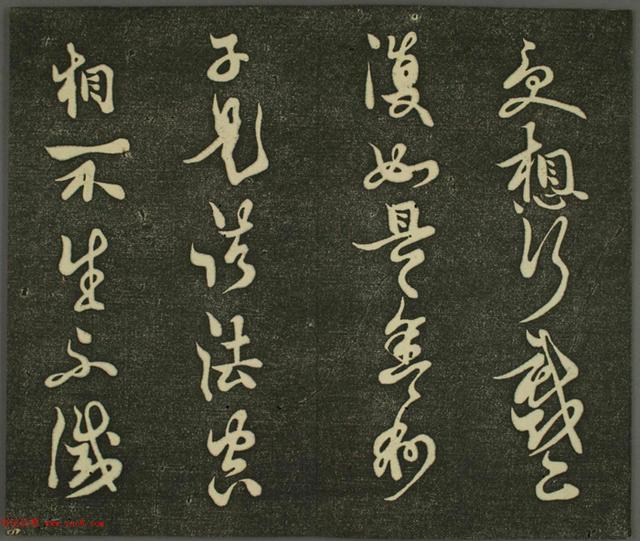 受想行識亦
復如是舍利
子是諸法空
相不生不滅
www.yac8.com